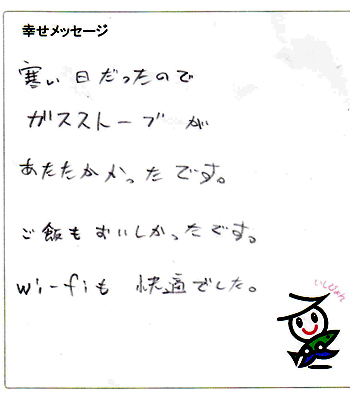 幸せメッセージ
寒い日だったので
ガスストーブが
あたたかかったです。
ご飯もおいしかったです。
wi-fiも 快適でした。
いしぴょん